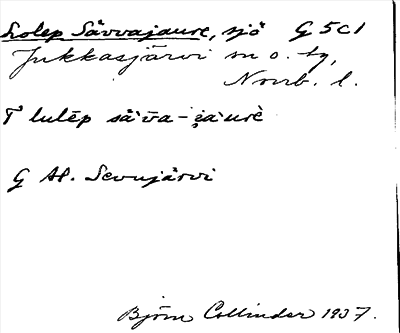 Lolep Såvvajaure, sjö G5c1
Jukkasjärvi sn o. tg,
Norrb. l.
T lulēp så̄va-jaurè
G Al. Sevujärvi
Björn Collinder 1937.